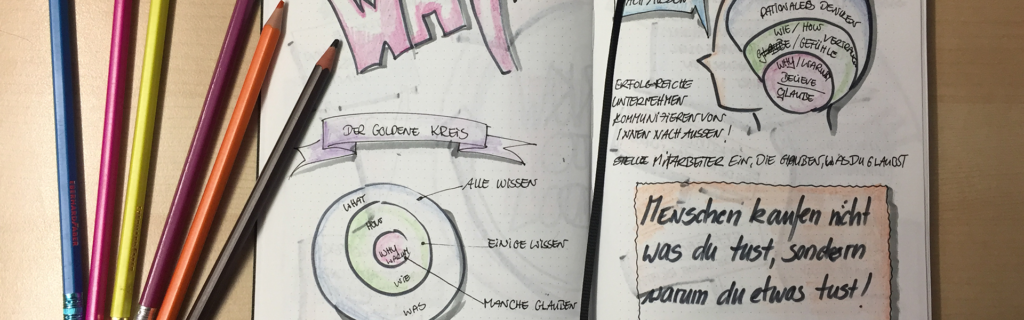 WHY
DER GOLDENE KREIS
ALLE WISSEN
WHAT
HOW
EINIGE WISSEN
WHY
WARUM
WIE
MANCHE GLAUBEN
WAS
RATIONALES DENKEN
WIE / HOW
/ GEFÜHLE
WHY / WARUM
BELIEVE
GLAUBE
ERFOLGREICHE
UNTERNEHMEN
KOMMUNIZIEREN VON
INNEN NACH AUSSEN!
STELLE MITARBEITER EIN, DIE GLAUBEN, WAS DU GLAUBST
Menschen kaufen nicht
was du tust, sondern
warum du etwas tust!